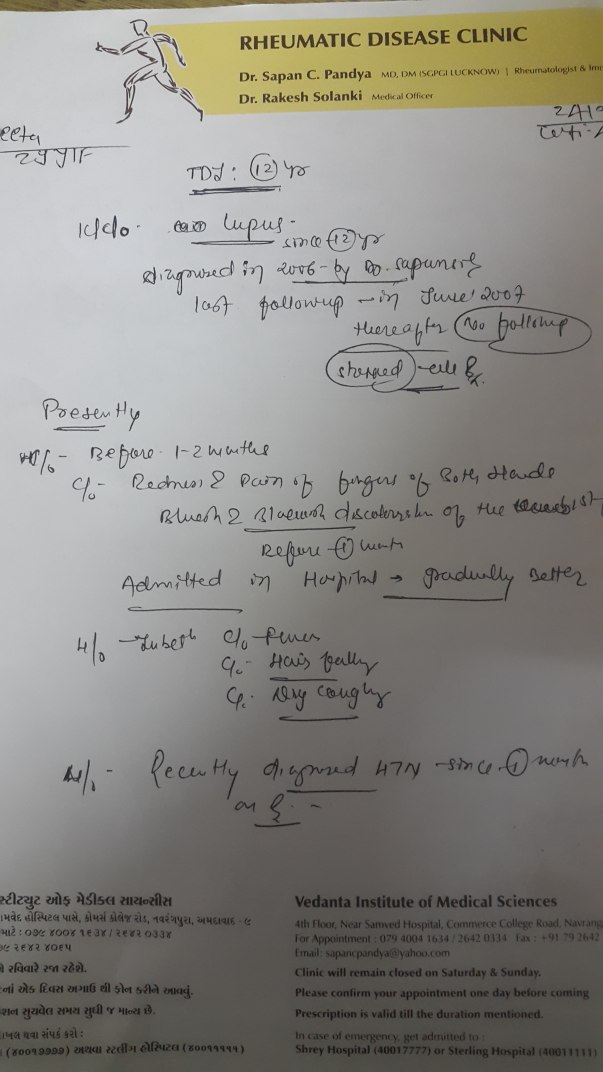 RHEUMATIC DISEASE CLINIC
Dr. Sapan C. Pandya MD, DM (SGPGI LUCKNOW) | Rheumatologist & Imm
Dr. Rakesh Solanki Medical Officer
eeta
29 yr/F
TDI: 12 yr
K/c/o. Lupus -
since 12 yr
diagnosed in 2006 - by Dr.
last followup - in June' 2007
thereafter No followup
stopped - all Rx.
Presently
H/o - Before 1-2 months
C/o - Redness & Pain of fingers of Both Hands
Bluish & discolorisation of the
Before 1 month
Admitted in Hospital → gradually Better
H/o C/o Fever
C/o Hairs fally
C/o. Dry coughy
H/o - Recently diagnosed HTN - since 1 month
on
સ્ટીટ્યુટ ઓફ મેડીકલ સાયન્સીસ
ામવેદ હોસ્પિટલ પાસે, કોમર્સ કોલેજ રોડ, નવરંગપુરા, અમદાવાદ - ૯
માટે : ૦૭૯ ૪૦૦૪ ૧૬૩૪ / ૨૬૪૨ ૦૩૩૪
૭૯ ૨૬૪૨ ૪૦૬૫
ે રવિવારે રજા રહેશે.
નાં એક દિવસ અગાઉ થી ફોન કરીને આવવું.
શન સુચવેલ સમય સુધી જ માન્ય છે.
ાખલ થવા સંપર્ક કરો :
(૪૦૦૧૭૭૭૭) અથવા સ્ટર્લીંગ હોસ્પિટલ (૪૦૦૧૧૧૧૧)
Vedanta Institute of Medical Sciences
4th Floor, Near Samved Hospital, Commerce College Road, Navrang
For Appointment : 079 4004 1634 / 2642 0334 Fax : +91 79 2642
Email: sapancpandya@yahoo.com
Clinic will remain closed on Saturday & Sunday.
Please confirm your appointment one day before coming
Prescription is valid till the duration mentioned.
In case of emergency, get admitted to :
Shrey Hospital (40017777) or Sterling Hospital (40011111)